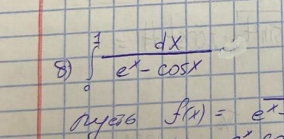 8) ∫₀¹ dx / (eˣ - cosx)
пусть f(x) = eˣ-